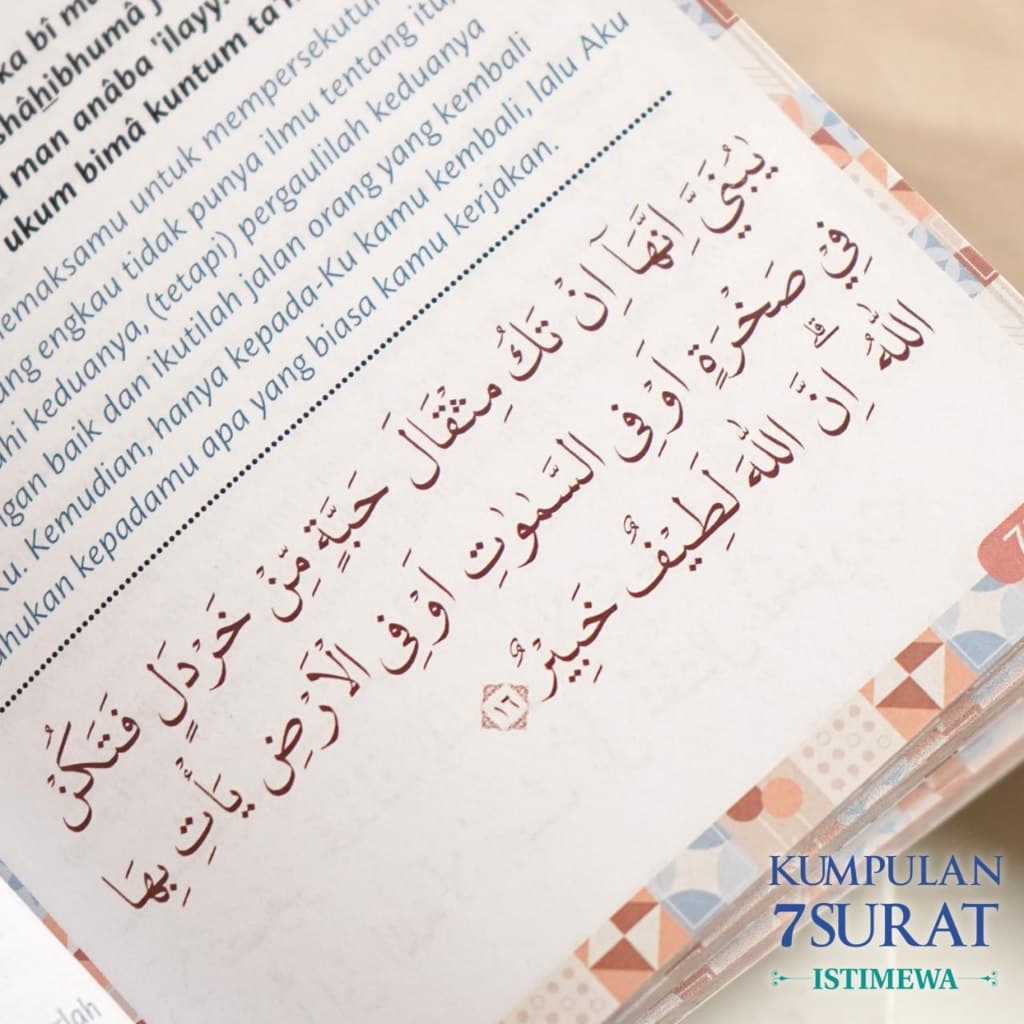 shâhibhumâ
man anâba 'ilayy.
ukum bimâ kuntum
memaksamu untuk mempersekutu
engkau tidak punya ilmu tentang itu,
keduanya, (tetapi) pergaulilah keduanya
dengan baik dan ikutilah jalan orang yang kembali
Ku. Kemudian, hanya kepada-Ku kamu kembali, lalu Aku
ahukan kepadamu apa yang biasa kamu kerjakan.
يٰبُنَيَّ اِنَّهَآ اِنْ تَكُ مِثْقَالَ حَبَّةٍ مِّنْ خَرْدَلٍ فَتَكُنْ
فِيْ صَخْرَةٍ اَوْ فِى السَّمٰوٰتِ اَوْ فِى الْاَرْضِ يَأْتِ بِهَا
اللّٰهُ ۗاِنَّ اللّٰهَ لَطِيْفٌ خَبِيْرٌ ١٦
7
KUMPULAN
7SURAT
ISTIMEWA